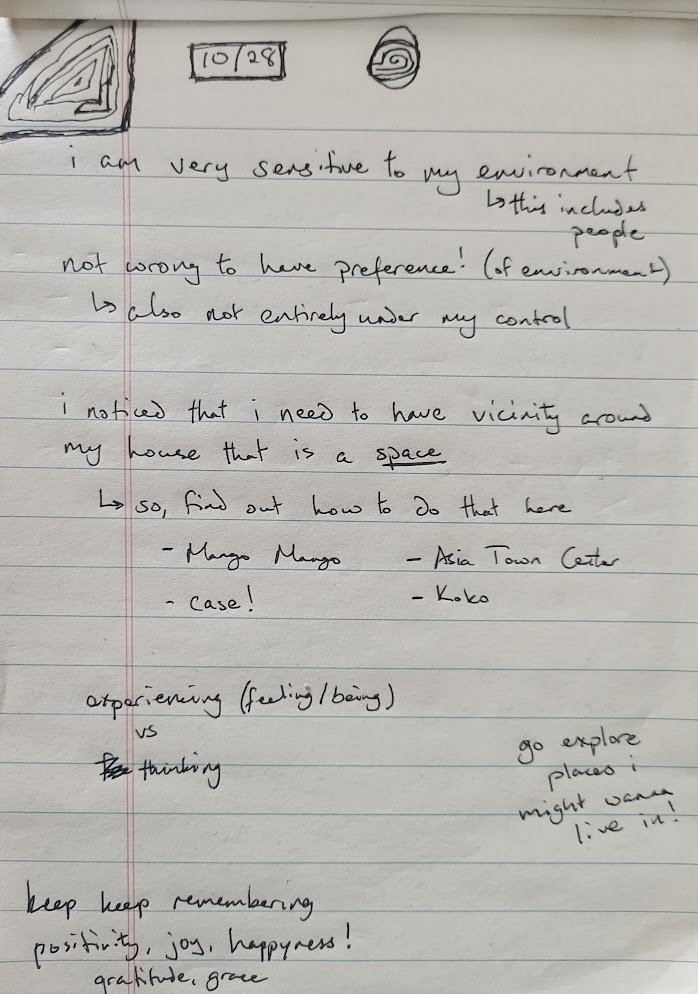 10/28
i am very sensitive to my environment
↳ this includes
people
not wrong to have preference! (of environment)
↳ also not entirely under my control
i noticed that i need to have vicinity around
my house that is a space
↳ so, find out how to do that here
- Mango Mango - Asia Town Center
- case! - Koko
experiencing (feeling/being)
vs
thinking
go explore
places i
might wanna
live in!
keep keep remembering
positivity, joy, happyness!
gratitude, grace